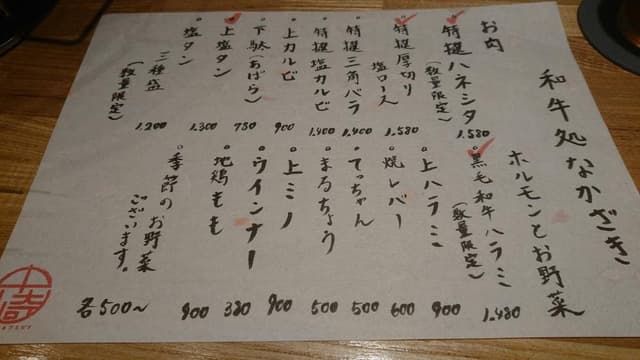 和牛処なかざき
お肉
特撰ハネシタ
(数量限定)
1.580
特撰厚切り
塩ロース
1.580
特撰三角バラ
1.400
特撰塩カルビ
1.400
上カルビ
900
下駄(あばら)
780
上塩タン
1.300
塩タン
三種盛
(数量限定)
1.200
ホルモンとお野菜
黒毛和牛ハラミ
(数量限定)
1.480
上ハラミ
900
焼レバー
600
てっちゃん
500
まるちょう
500
上ミノ
900
ウインナー
380
地鶏もも
900
季節のお野菜
ございます。
各500〜